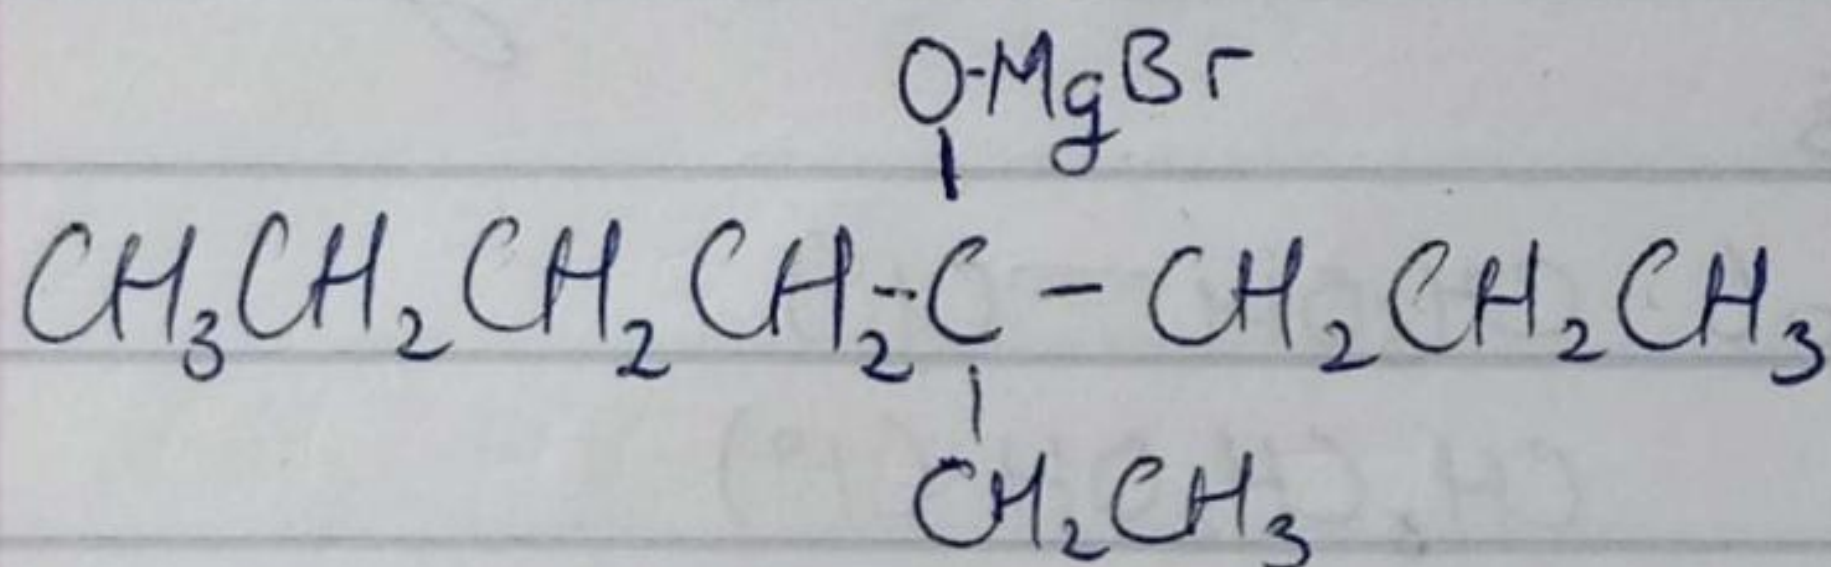 O-MgBr
CH₃CH₂CH₂CH₂-C-CH₂CH₂CH₃
CH₂CH₃